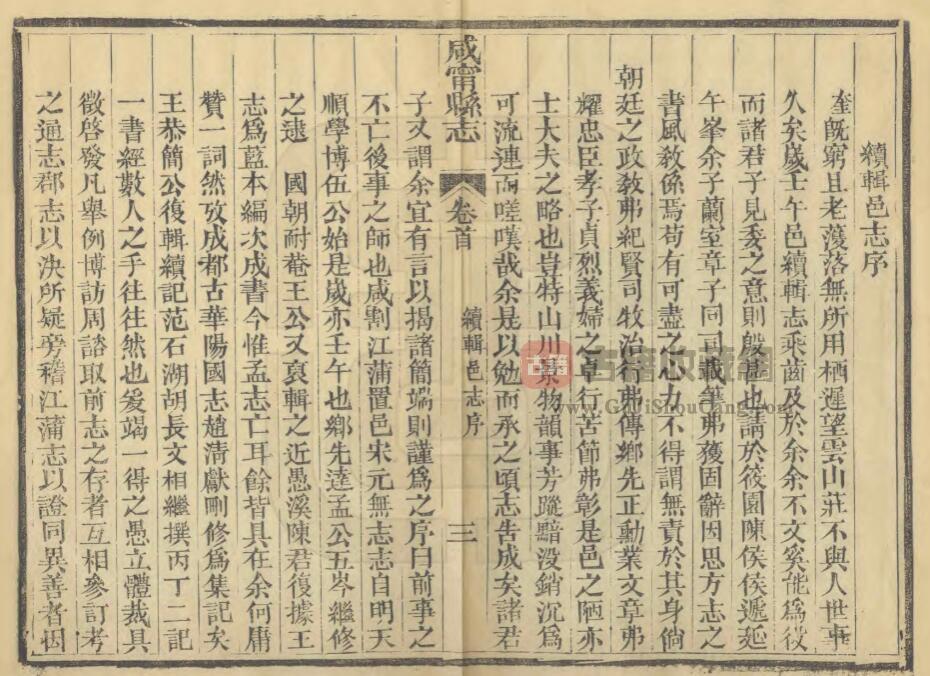 續輯邑志序
奎旣窮且老濩落無所用栖遲望雲山莊不與人世事
久矣歲壬午邑續輯志乘齒及於余余不文奚能爲役
而諸君子見委之意則殷甚也請於筱園陳侯侯遞延
午峯余子蘭室章子同司載筆弗獲固辭因思方志之
書風敎係焉苟有可盡之心力不得謂無責於其身倘
朝廷之政敎弗紀賢司牧治行弗傳鄉先正勳業文章弗
耀忠臣孝子貞烈義婦之卓行苦節弗彰是邑之陋亦
士大夫之略也豈特山川景物韻事芳蹤黯没銷沉爲
可流連而嗟嘆哉余是以勉而承之頃志告成矣諸君
咸甯縣志
卷首
續輯邑志序
三
子又謂余宜有言以揭諸簡端則謹爲之序曰前事之
不亡後事之師也咸割江蒲置邑宋元無志志自明天
順學博伍公始是歲亦壬午也鄉先達孟公五岑繼修
之逮 國朝耐菴王公又裒輯之近愚溪陳君復據王
志爲藍本編次成書今惟孟志亡耳餘皆具在余何庸
贊一詞然攷成都古華陽國志趙淸獻刪修爲集記矣
王恭簡公復輯續記范石湖胡長文相繼撰丙丁二記
一書經數人之手往往然也爰竭一得之愚立體裁具
徵啓發凡舉例博訪周諮取前志之存者互相參訂考
之通志郡志以決所疑旁稽江蒲志以證同異善者因
古籍收藏網
www.GuJiShouCang.com